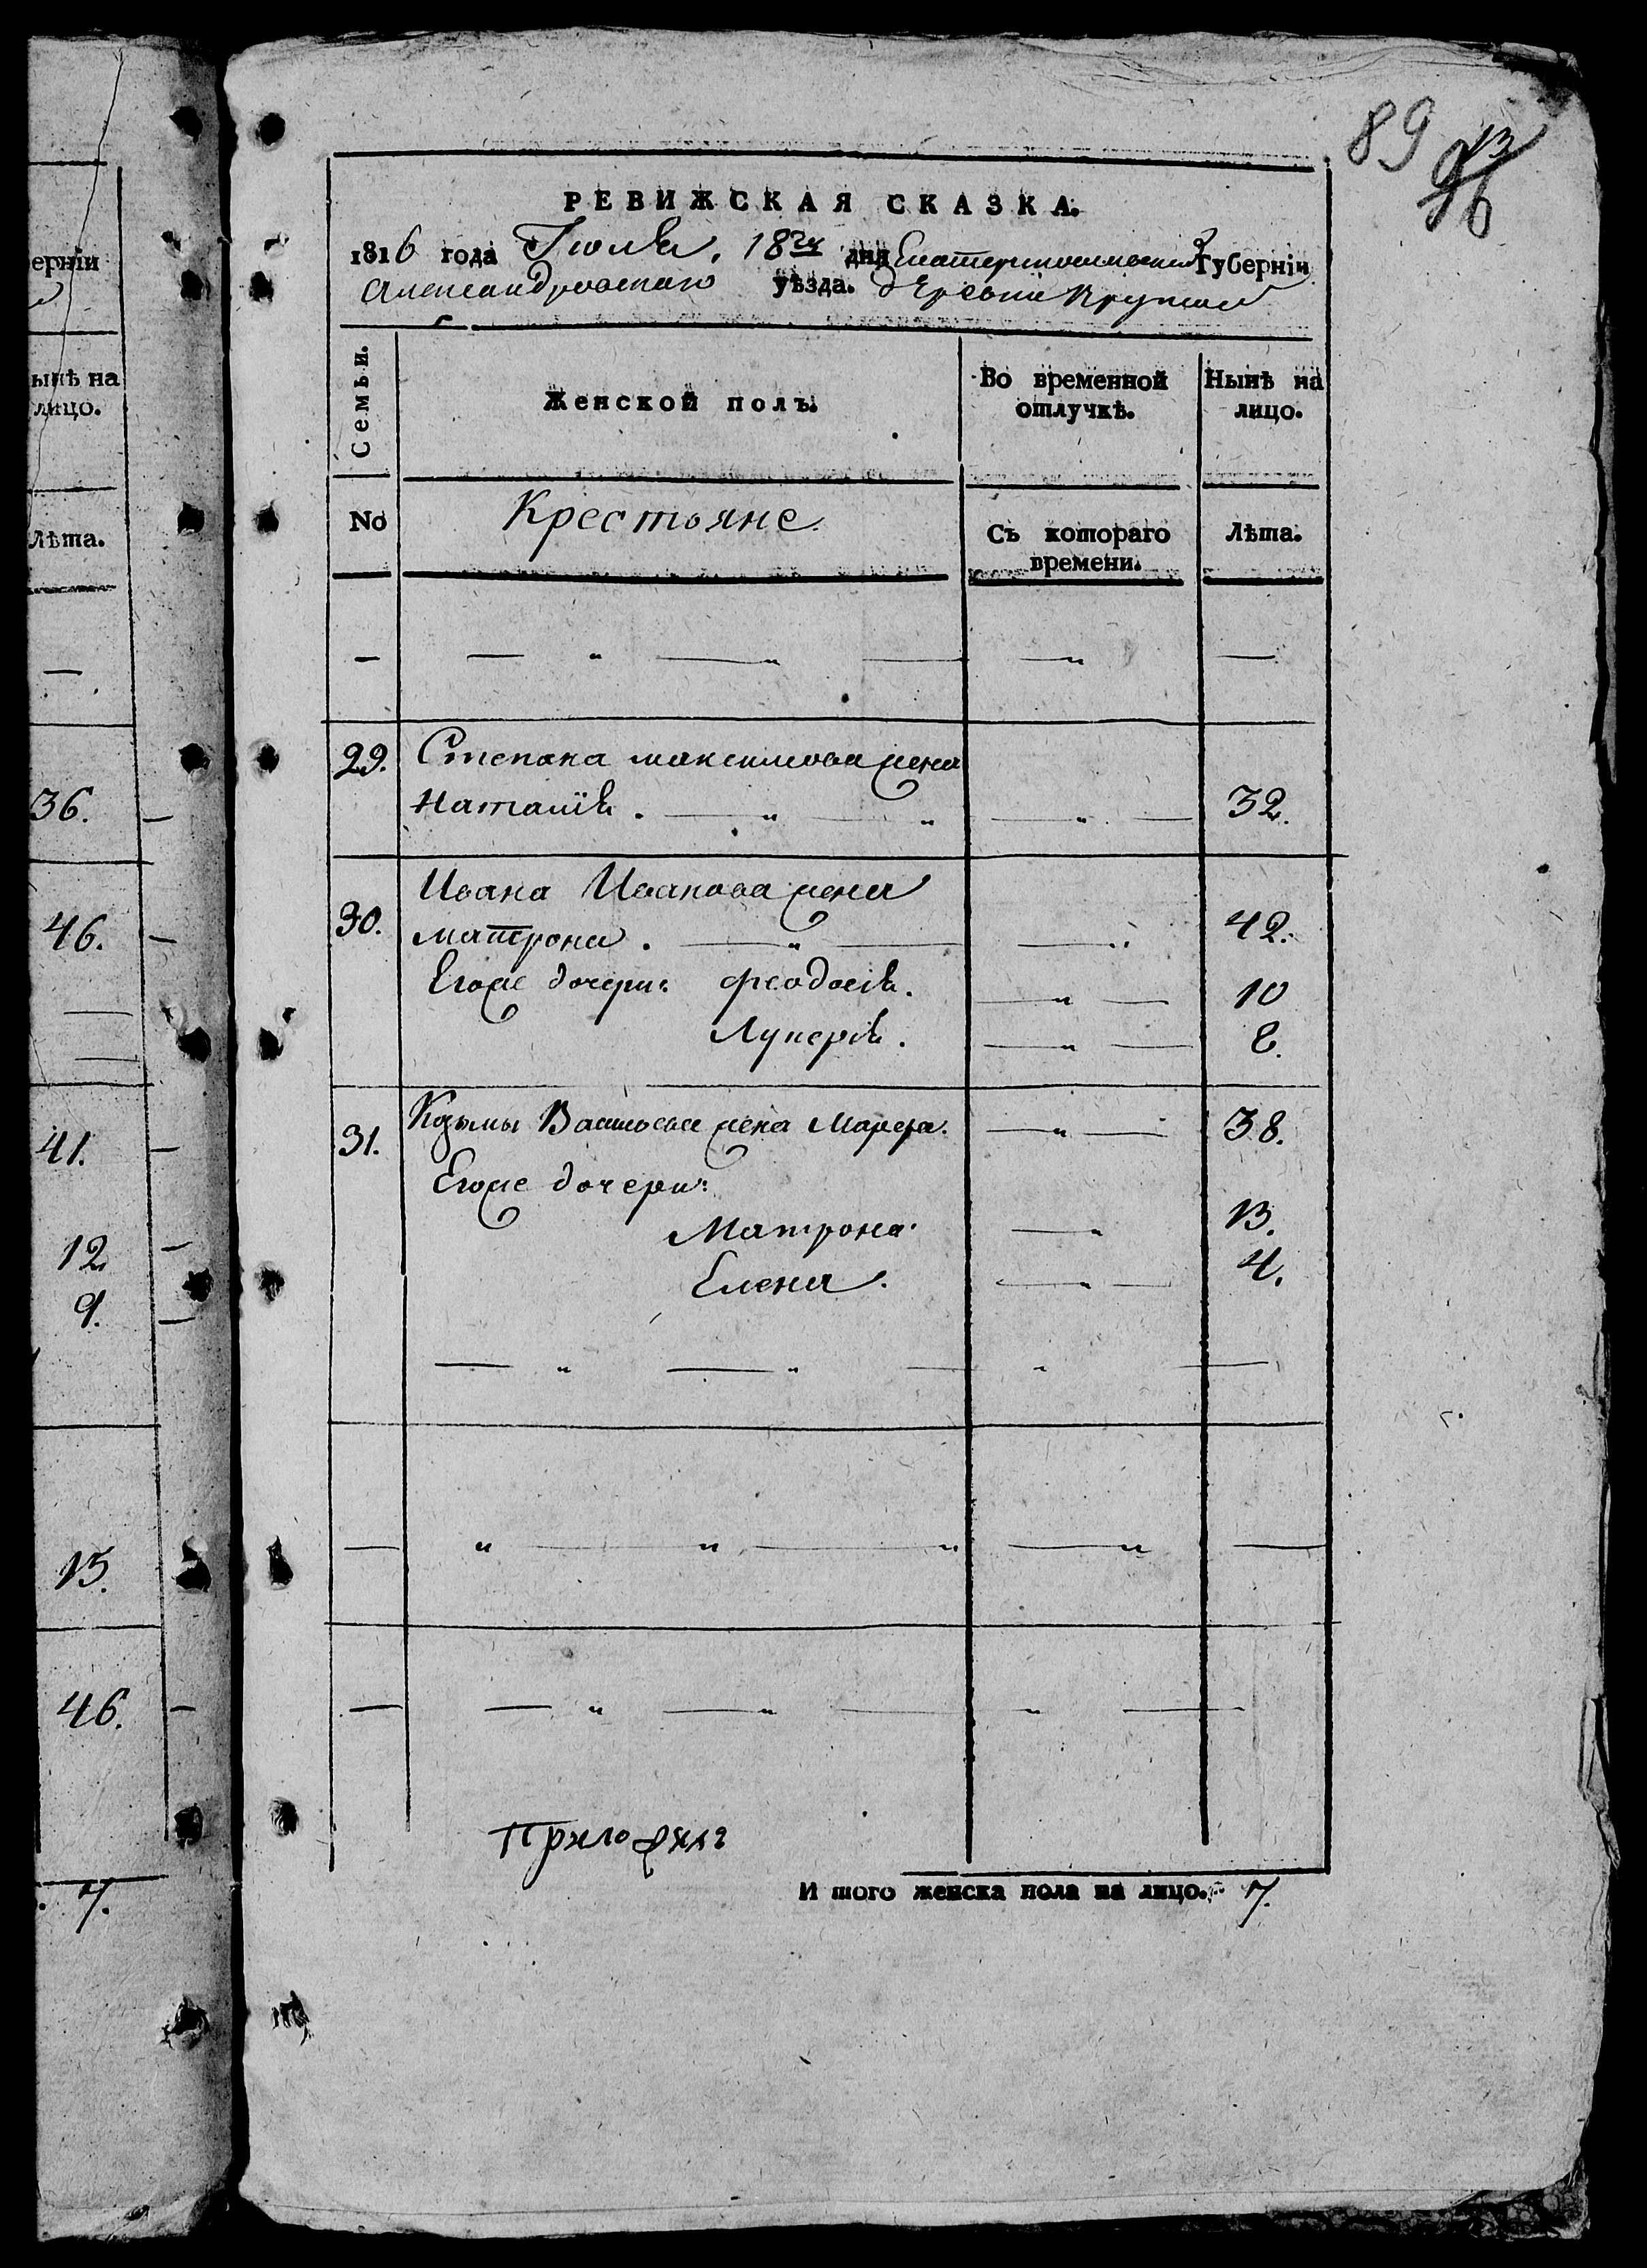 89
96
ернїи
РЕВИЖСКАЯ СКАЗКА.
1816 года Іюля. 18го дня Екатеринославской Губернїи
Александровскаго уѣзда. деревни Крупской
ынѣ на
лицо.
Семьи.
Женской полъ.
Во временной
отлучкѣ.
Нынѣ на
лицо.
No
Крестьяне.
Съ котораго
времени.
Лѣта.
лѣта.
29. Степана Максимова жена
Наталїя. 32.
36.
30. Ивана Иванова жена
Матрона. 42.
46.
Егоже дочери: Феодосїя. 10
Лукерїя. 8.
31. Козьмы Васильева жена Марфа. 38.
41.
Егоже дочери:
Матрона. 13.
12
Елена. 4.
9.
15.
46.
И того женска пола на лицо. 7.
7.